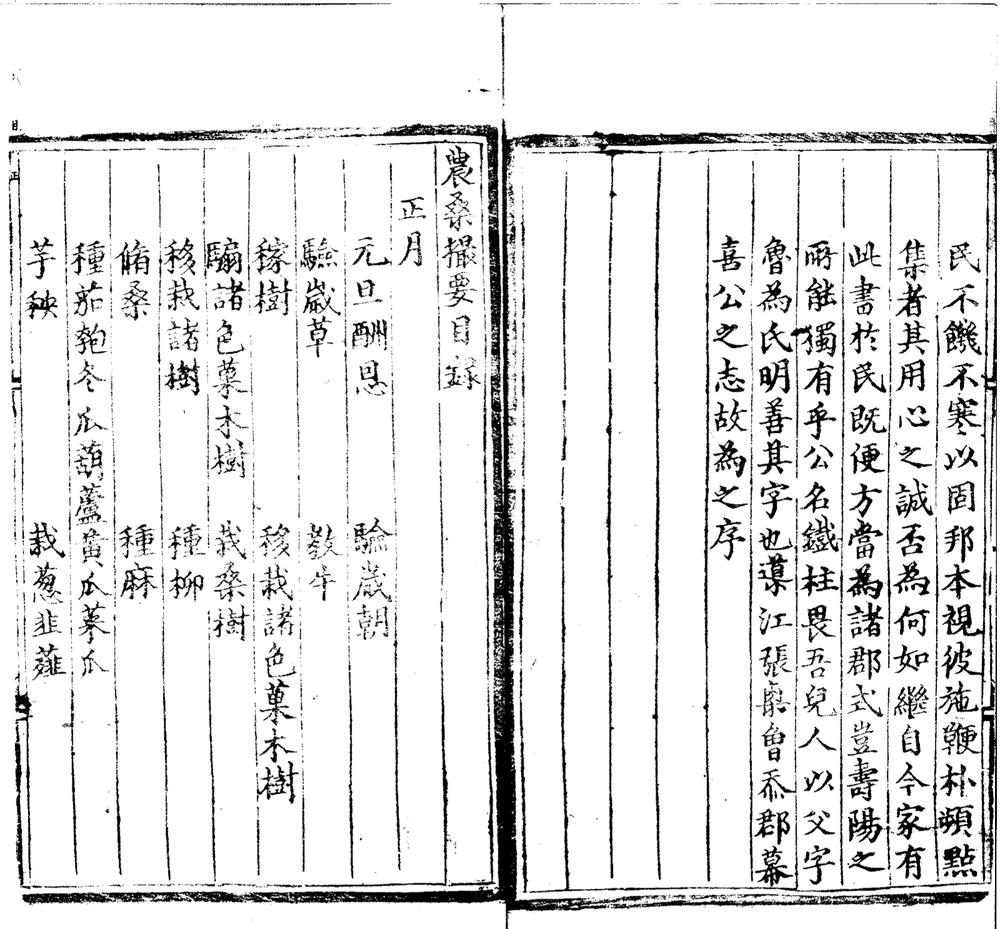 民不饑不寒以固邦本視彼施鞭朴頻點
集者其用心之誠否為何如繼自今家有
此書於民既便方當為諸郡式豈壽陽之
所能獨有乎公名鐵柱畏吾兒人以父字
魯為氏明善其字也導江張㮚曾忝郡幕
喜公之志故為之序
農桑撮要目錄
正月
元旦酬恩 驗歲朝
驗歲草 教牛
稼樹 移栽諸色菓木樹
騸諸色菓木樹 栽桑樹
移栽諸樹 種柳
脩桑 種麻
種茄匏冬瓜葫蘆黃瓜菜瓜
芋秧 栽葱韭薤